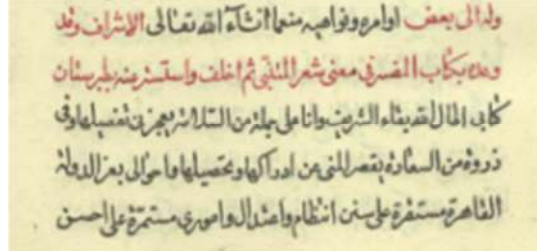 وله الى بعض اوامره ونواهيه منعما ان شآء الله تعالى الاشراف وقد
وعده بكتاب المفسر في معنى شعر المتنبي ثم اخلف واستقر عنه بطبرستان
كتابي اطال الله بقاء الشريف وانا على جملة من السلامة يعجز عن تفصيلها وفي
ذروة من السعادة يقصر المنى عن ادراكها وتحصيلها واحوالي بعز الدولة
القاهرة مستقرة على سنن انتظام واعتدال واموري مستمرة على احسن